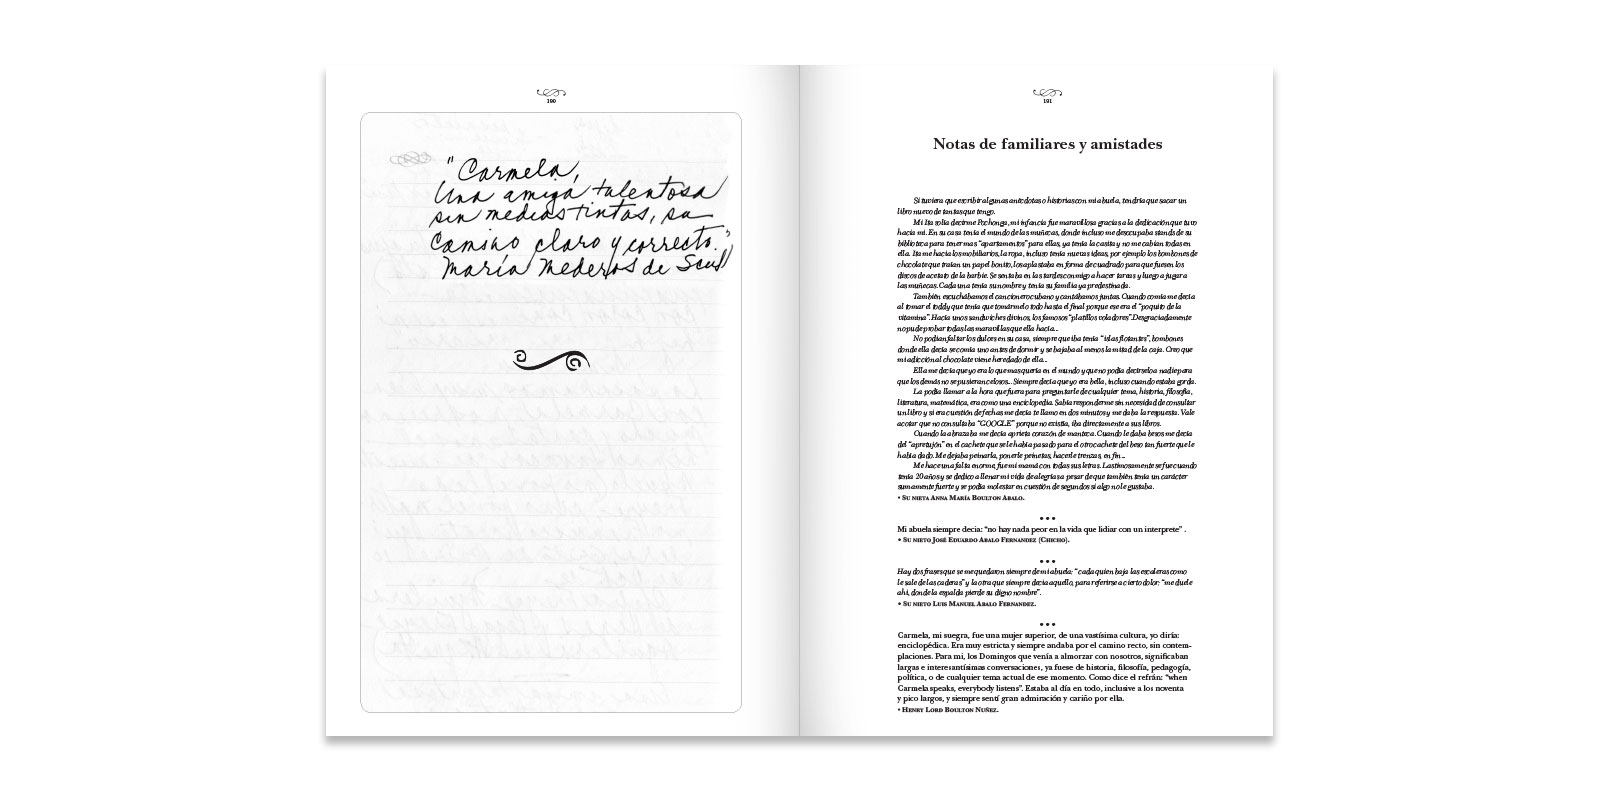 190
"Carmela,
Una amiga talentosa
sin medias tintas, su
Camino claro y correcto."
María Mederos de
191
Notas de familiares y amistades
Si tuviera que escribir algunas anécdotas o historias con mi abuela, tendría que sacar un
libro nuevo de tantas que tengo.
Mi Ita solía decirme Pochonga, mi infancia fue maravillosa gracias a la dedicación que tuvo
hacia mi. En su casa tenía el mundo de las muñecas, donde incluso me desocupaba stands de su
biblioteca para tener mas "apartamentos" para ellas, ya tenía la casita y no me cabían todas en
ella. Ita me hacía los mobiliarios, la ropa, incluso tenía nuevas ideas, por ejemplo los bombones de
chocolate que traían un papel bonito, los aplastaba en forma de cuadrado para que fuesen los
discos de acetato de la barbie. Se sentaba en las tardes conmigo a hacer tareas y luego a jugar a
las muñecas. Cada una tenía su nombre y tenía su familia ya predestinada.
También escuchábamos el cancionero cubano y cantábamos juntas. Cuando comía me decía
al tomar el toddy que tenía que tomármelo todo hasta el final porque ese era el "poquito de la
vitamina". Hacía unos sandwiches divinos, los famosos "platillos voladores". Desgraciadamente
no pude probar todas las maravillas que ella hacía...
No podían faltar los dulces en su casa, siempre que iba tenía "islas flotantes", bombones
donde ella decía se comía uno antes de dormir y se bajaba al menos la mitad de la caja. Creo que
mi adicción al chocolate viene heredado de ella...
Ella me decía que yo era lo que mas quería en el mundo y que no podía decírselo a nadie para
que los demás no se pusieran celosos... Siempre decía que yo era bella, incluso cuando estaba gorda.
La podía llamar a la hora que fuera para preguntarle de cualquier tema, historia, filosofía,
literatura, matemática, era como una enciclopedia. Sabía responderme sin necesidad de consultar
un libro y si era cuestión de fechas me decía te llamo en dos minutos y me daba la respuesta. Vale
acotar que no consultaba "GOOGLE" porque no existía, iba directamente a sus libros.
Cuando la abrazaba me decía aprieta corazón de manteca. Cuando le daba besos me decía
del "apretujón" en el cachete que se le había pasado para el otro cachete del beso tan fuerte que le
había dado. Me dejaba peinarla, ponerle peinetas, hacerle trenzas, en fin...
Me hace una falta enorme, fue mi mamá con todas sus letras. Lastimosamente se fue cuando
tenía 20 años y se dedico a llenar mi vida de alegrías a pesar de que también tenía un carácter
sumamente fuerte y se podía molestar en cuestión de segundos si algo no le gustaba.
• Su nieta Anna María Boulton Abalo.
•••
Mi abuela siempre decia: "no hay nada peor en la vida que lidiar con un interprete" .
• Su nieto José Eduardo Abalo Fernandez (Chicho).
•••
Hay dos frases que se me quedaron siempre de mi abuela: "cada quien baja las escaleras como
le sale de las caderas" y la otra que siempre decía aquello, para referirse a cierto dolor: "me duele
ahi, donde la espalda pierde su digno nombre".
• Su nieto Luis Manuel Abalo Fernandez.
•••
Carmela, mi suegra, fue una mujer superior, de una vastísima cultura, yo diría:
enciclopédica. Era muy estricta y siempre andaba por el camino recto, sin contem-
placiones. Para mi, los Domingos que venía a almorzar con nosotros, significaban
largas e interesantísimas conversaciones, ya fuese de historia, filosofía, pedagogía,
política, o de cualquier tema actual de ese momento. Como dice el refrán: "when
Carmela speaks, everybody listens". Estaba al día en todo, inclusive a los noventa
y pico largos, y siempre sentí gran admiración y cariño por ella.
• Henry Lord Boulton Nuñez.